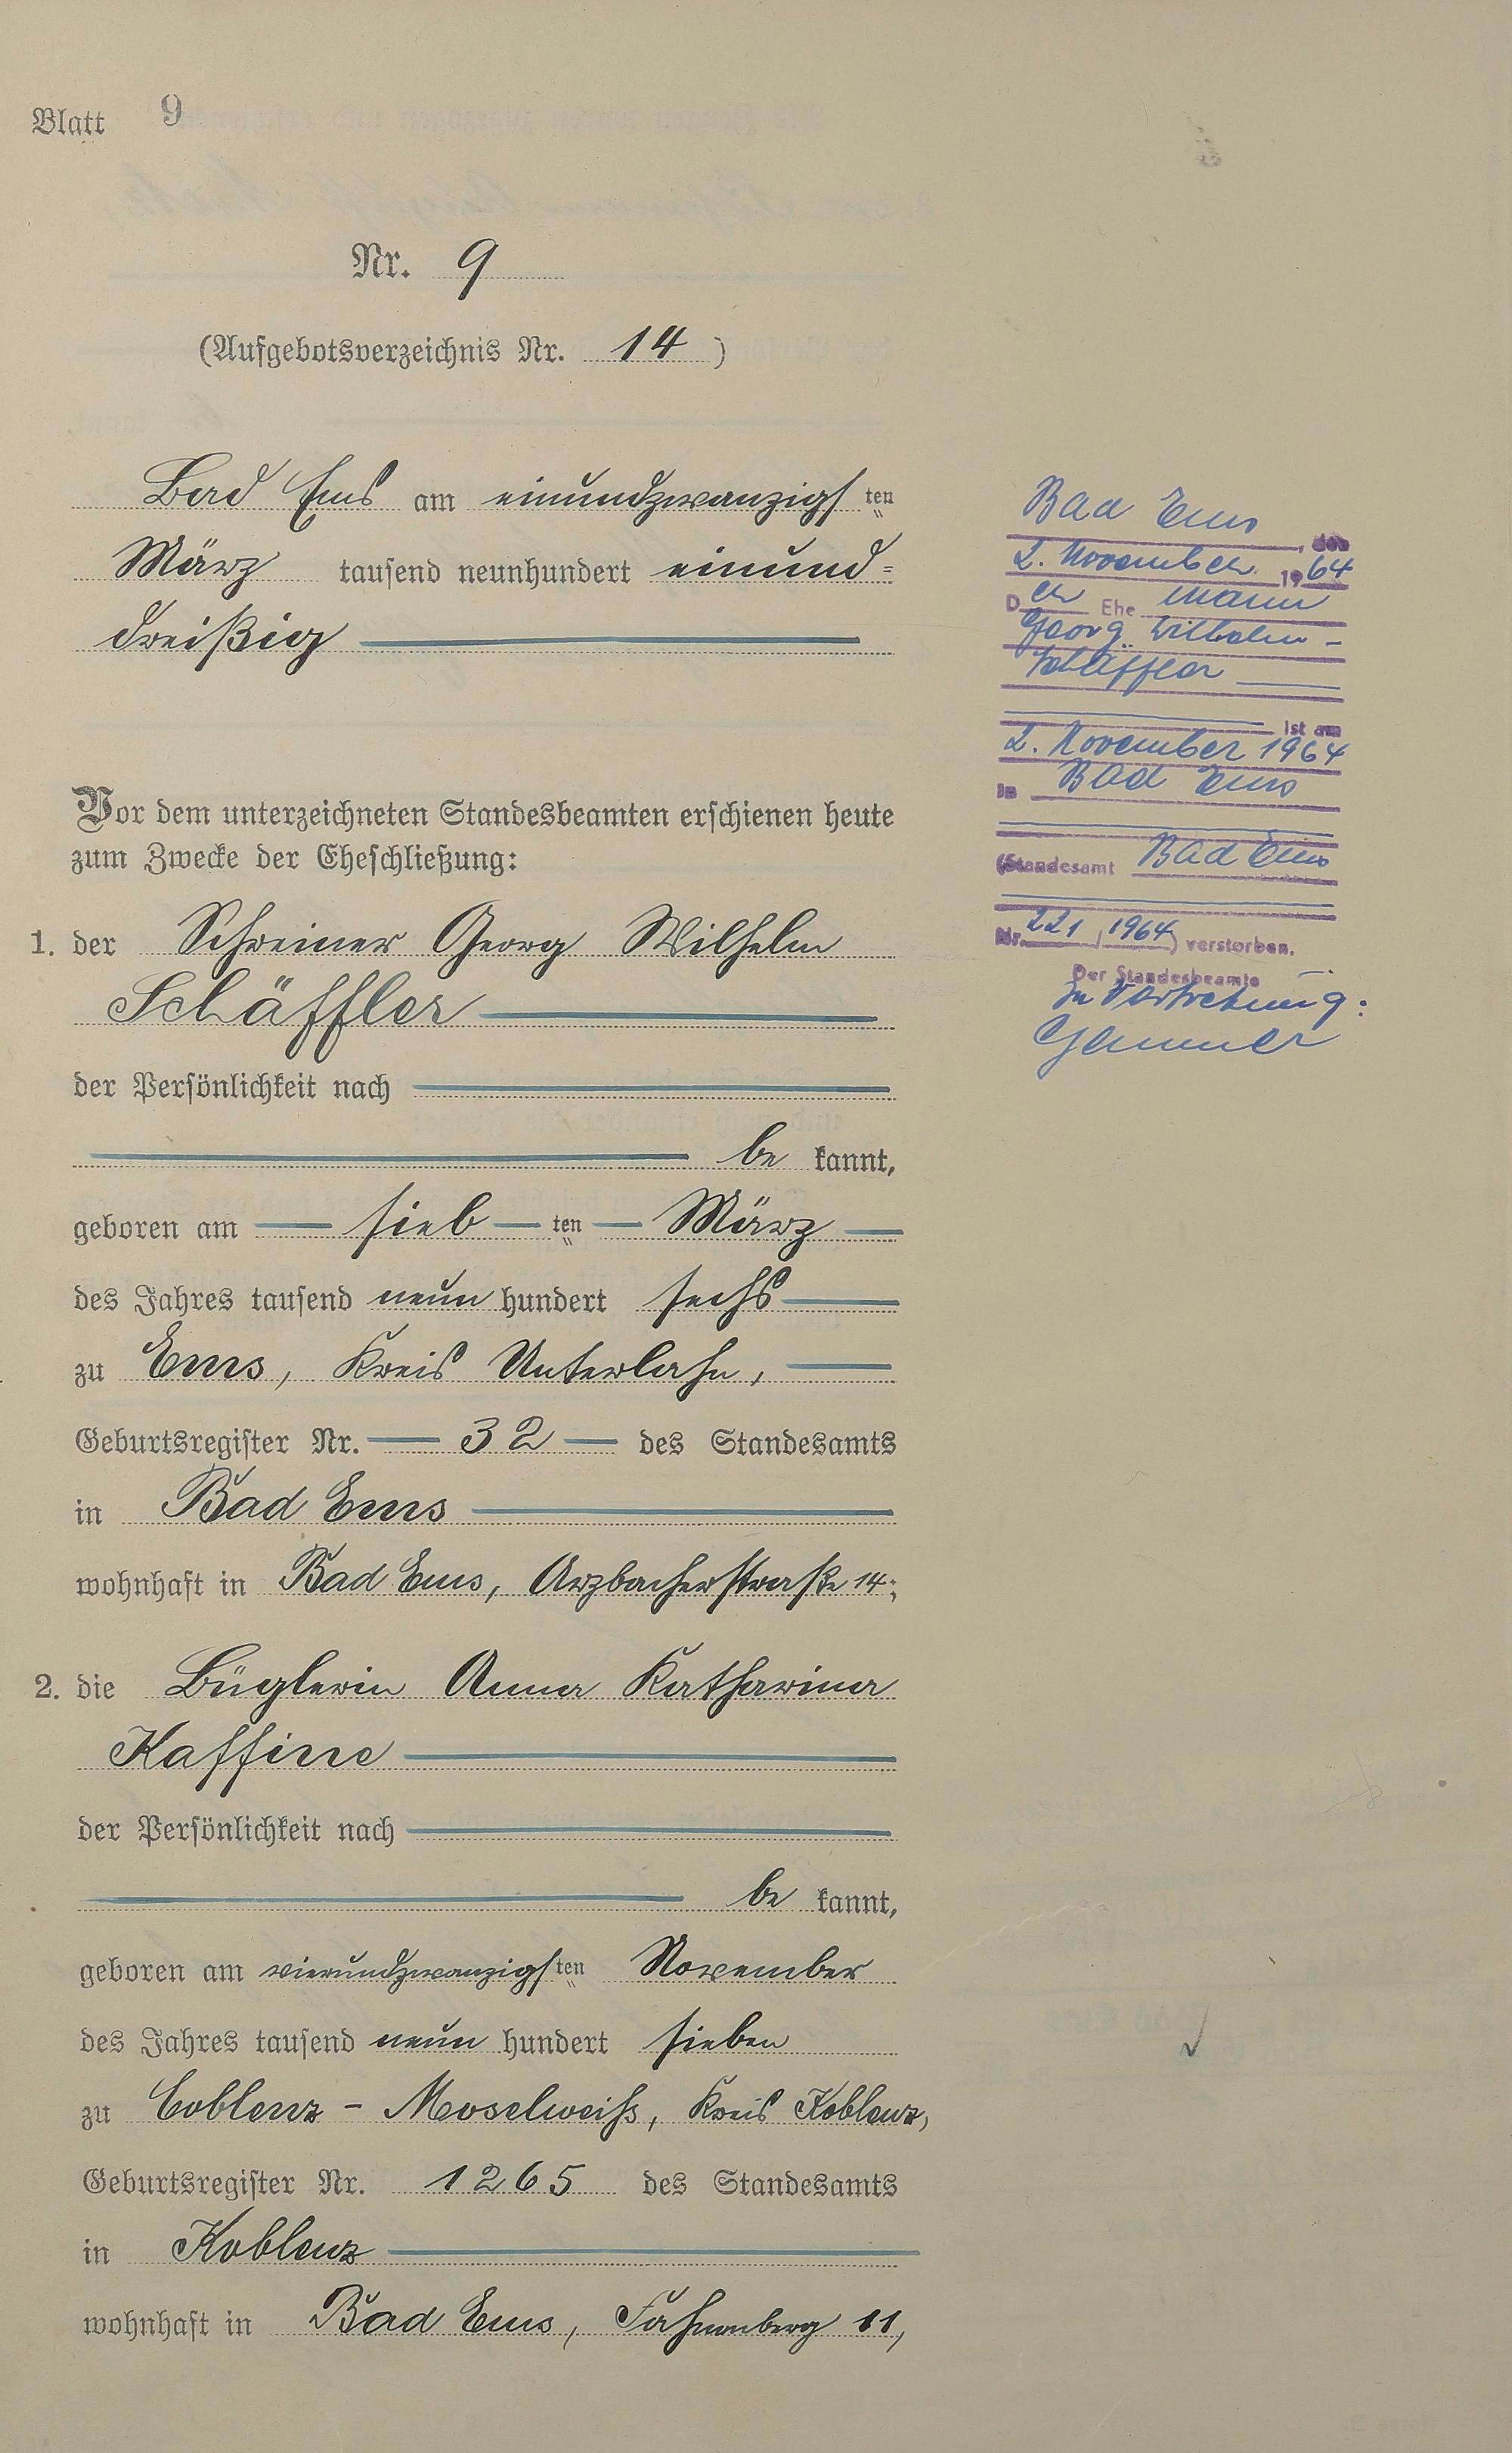 Blatt 9
Nr. 9
(Aufgebotsverzeichnis Nr. 14)
Bad Ems am einundzwanzigsten
März tausend neunhundert einund=
dreißig
Vor dem unterzeichneten Standesbeamten erschienen heute
zum Zwecke der Eheschließung:
1. der Schreiner Georg Wilhelm
Schäffler
der Persönlichkeit nach
be kannt,
geboren am sieb ten März
des Jahres tausend neun hundert sechs
zu Ems, Kreis Unterlahn,
Geburtsregister Nr. 32 des Standesamts
in Bad Ems
wohnhaft in Bad Ems, Arzbacherstraße 14;
2. die Büglerin Anna Katharina
Kaffine
der Persönlichkeit nach
be kannt,
geboren am vierundzwanzigsten November
des Jahres tausend neun hundert sieben
zu Coblenz - Moselweiß, Kreis Koblenz,
Geburtsregister Nr. 1265 des Standesamts
in Koblenz
wohnhaft in Bad Ems, Fahnenberg 11,
Bad Ems
, den
2. November 1964
Der Ehe mann
Georg Wilhelm -
Schäffler
ist am
2. November 1964
in Bad Ems
(Standesamt Bad Ems
Nr. 221 / 1964) verstorben.
Der Standesbeamte
In Vertretung: